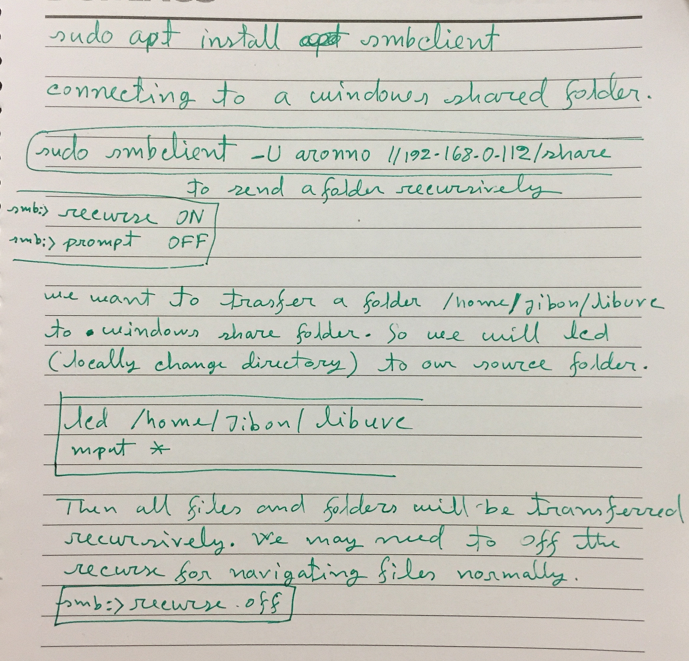 sudo apt install smbclient
connecting to a windows shared folder.
sudo smbclient -U aronno //192.168.0.112/share
to send a folder recursively
smb:> recurse ON
smb:> prompt OFF
we want to trasfer a folder /home/jibon/libuve
to windows share folder. So we will lcd
(locally change directory) to our source folder.
lcd /home/jibon/libuve
mput *
Then all files and folders will be transferred
recursively. We may need to off the
recurse for navigating files normally.
smb:> recurse off